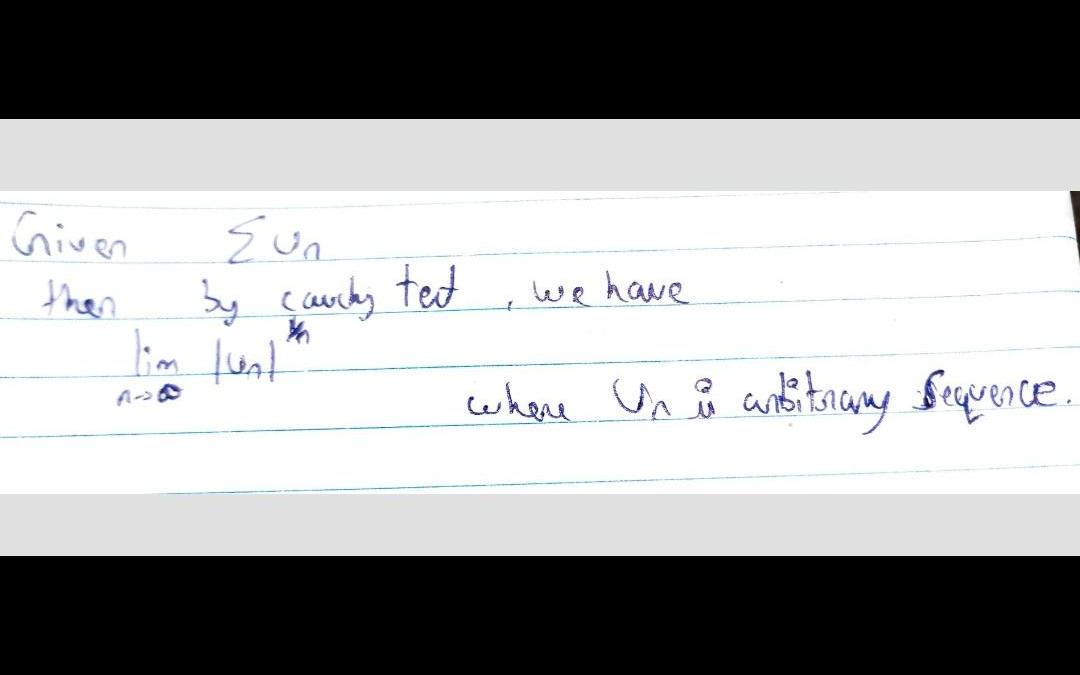 Given Σ Un
then by cauchy test, we have
lim |Un|^1/n
n→∞
where Un is arbitrary sequence.